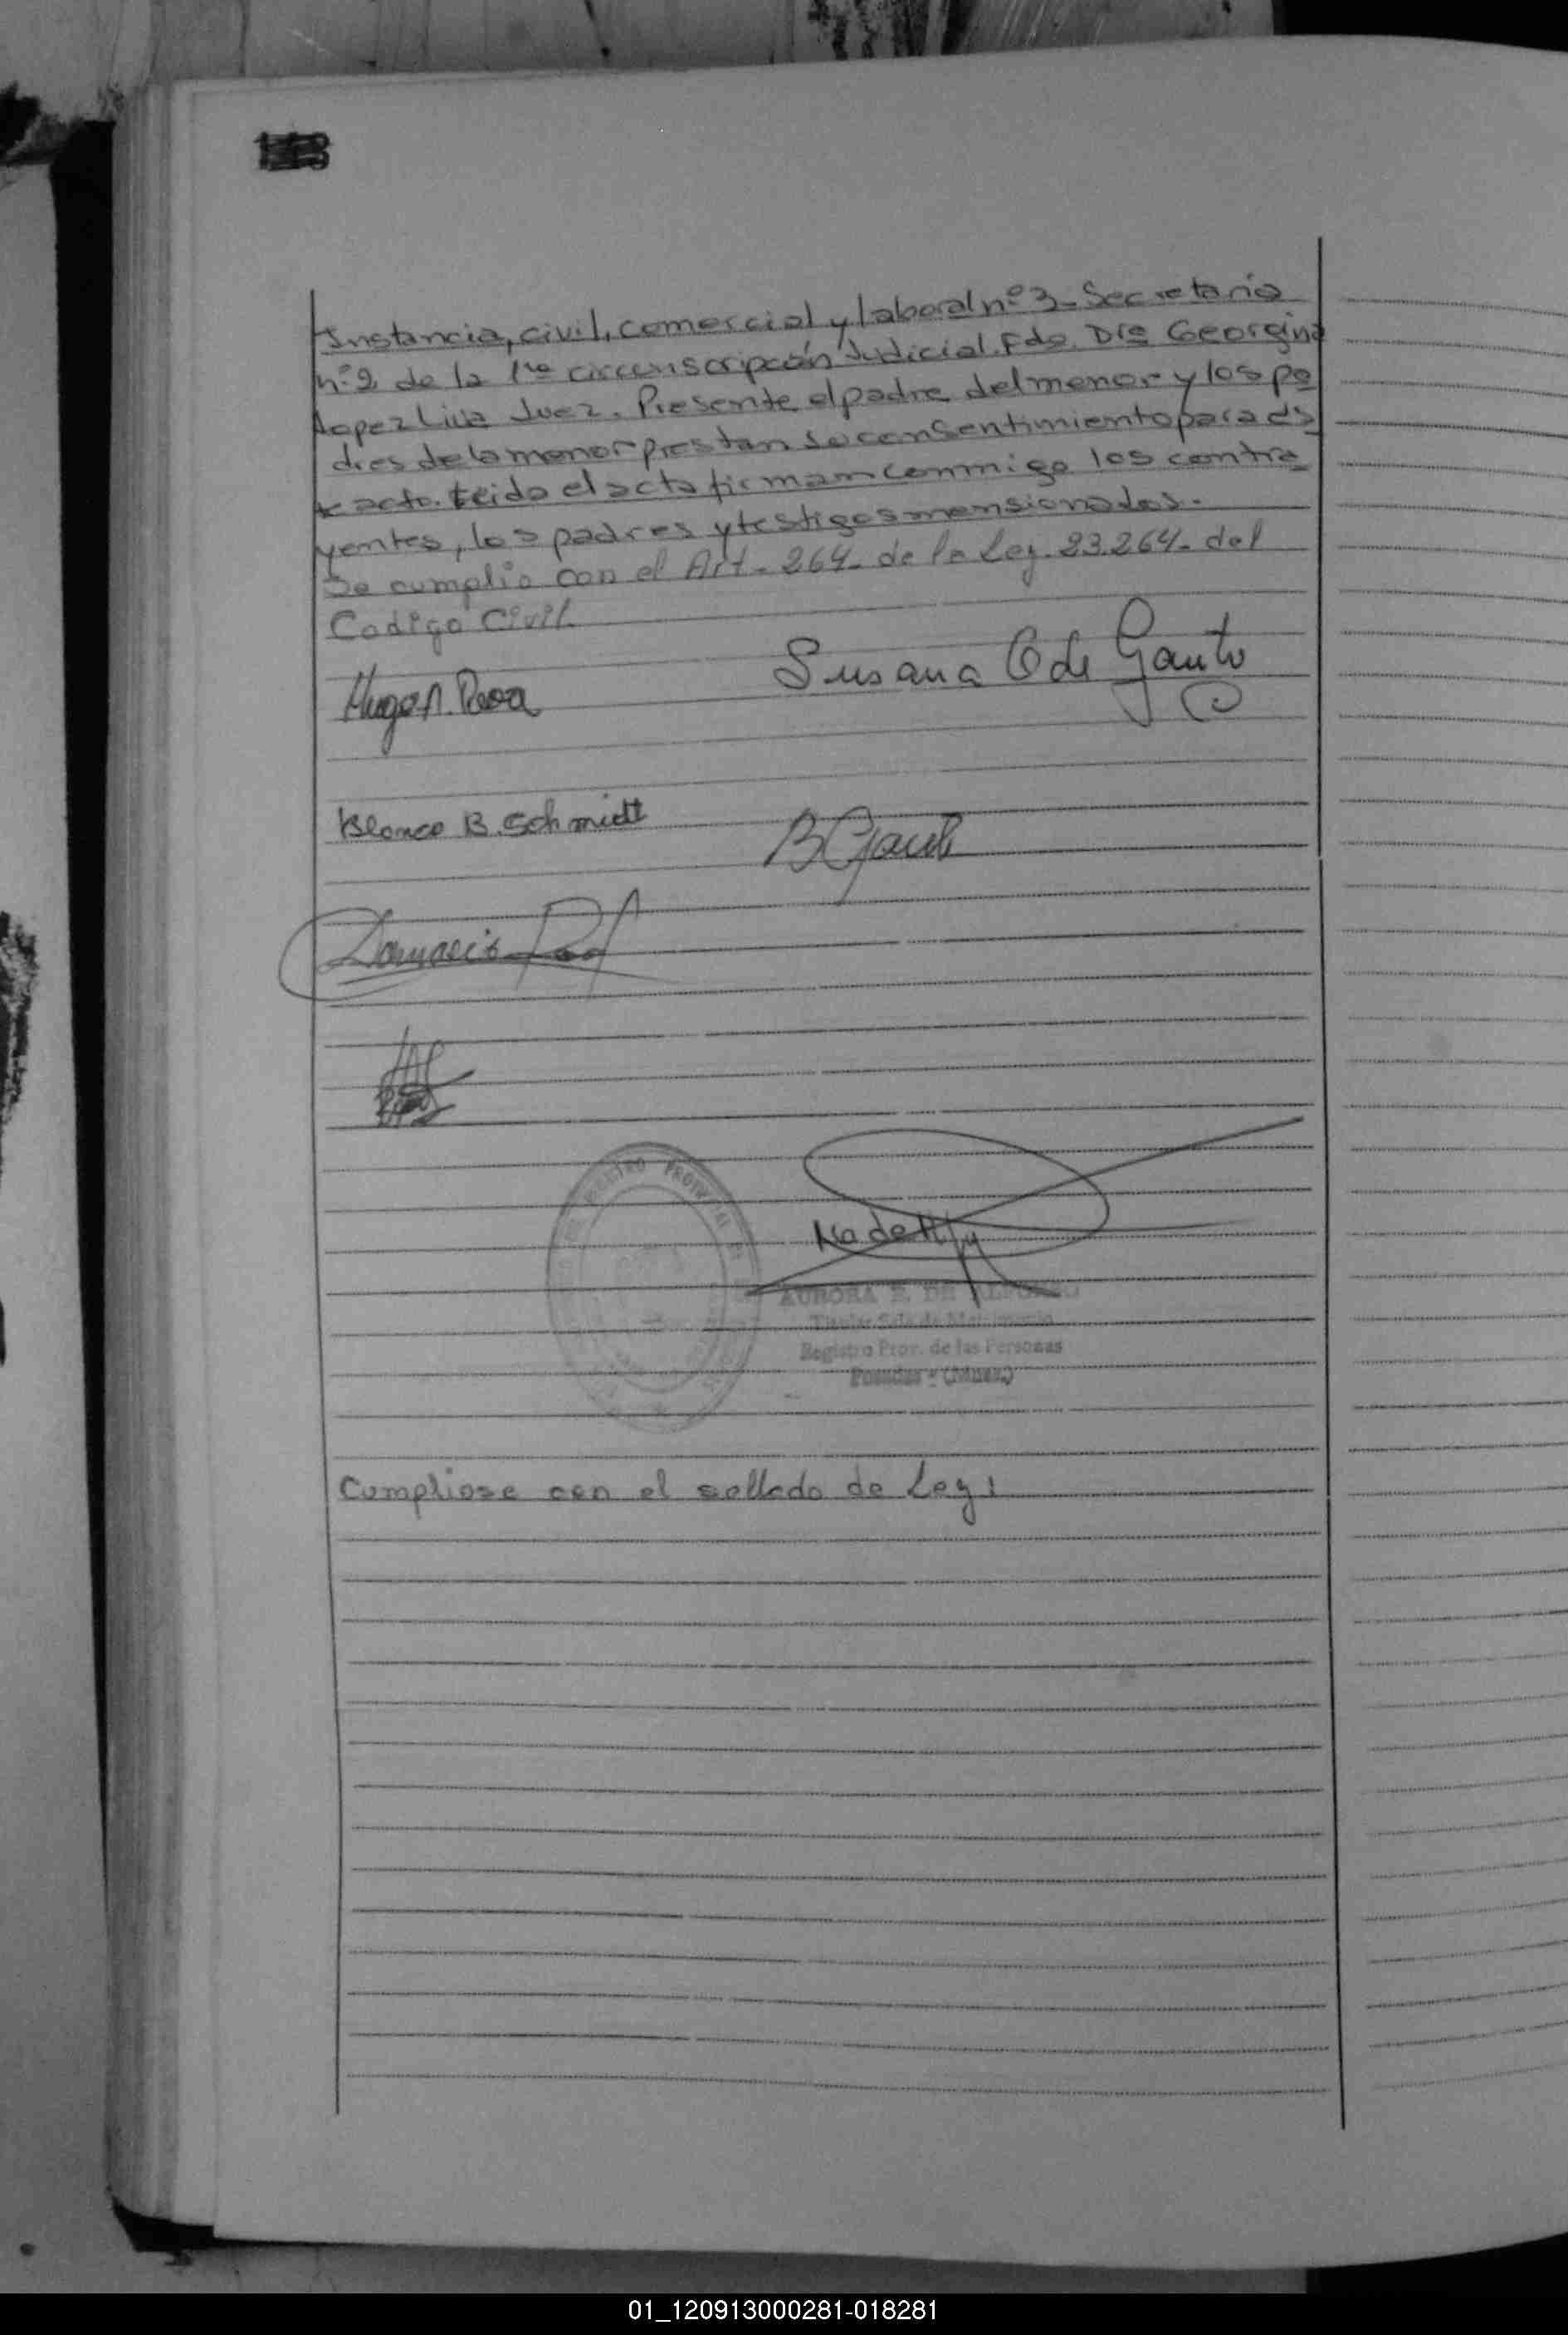 Instancia, civil, comercial y laboral nº 3_ Secretaria
nº 2 de la 1ra circunscripción Judicial. Fdo. Dra Georgina
Lopez Liva Juez. Presente el padre del menor y los pa
dres de la menor prestan su consentimiento para es
te acto. Leida el acta firman conmigo los contra
yentes, los padres y testigos mensionados.
Se cumplio con el Art. 264. de la Ley. 23.264. del
Codigo Civil.
Susana C de Gauto
Hugo A.
Blanca B. Schmidt
B Gauto
REGISTRO PROVINCIAL DE
AURORA E. DE ALFONSO
Titular Sala de Matrimonio
Registro Prov. de las Personas
Posadas - (Mnes.)
Cumpliose con el sellado de Ley:
01_120913000281-018281